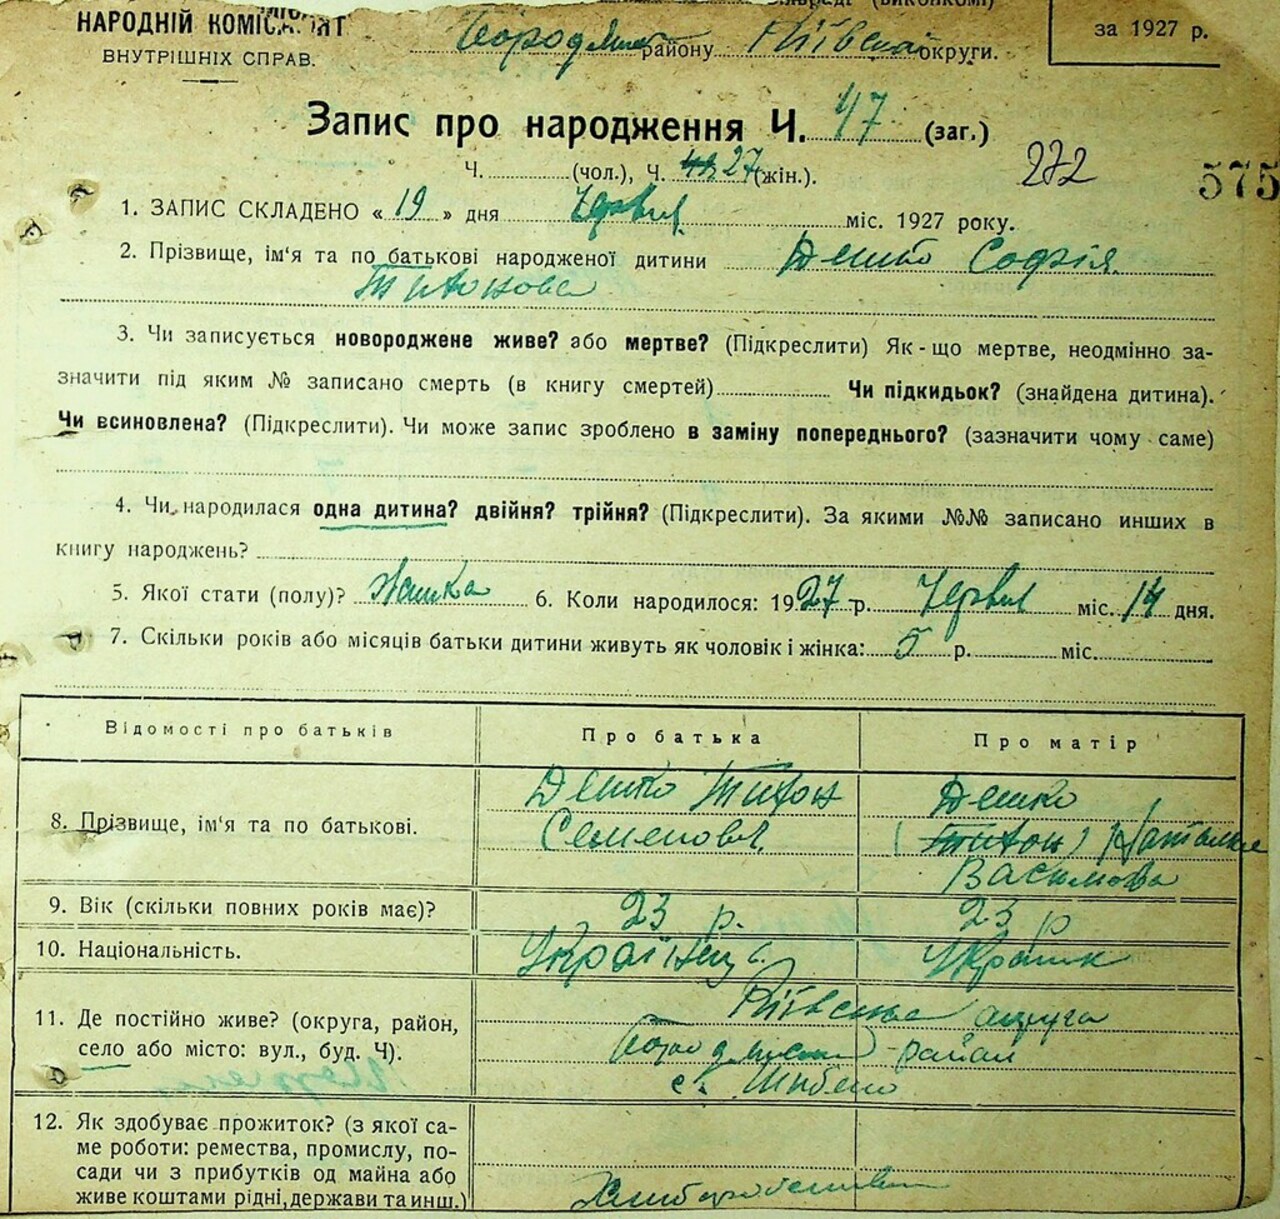 НАРОДНІЙ КОМІСАРІЯТ
ВНУТРІШНІХ СПРАВ.
(виконкомі)
району Київської округи.
за 1927 р.
Запис про народження Ч. 47 (заг.)
Ч. (чол.), Ч. 27 (жін.).
272
575
1. ЗАПИС СКЛАДЕНО « 19 » дня Червня міс. 1927 року.
2. Прізвище, ім'я та по батькові народженої дитини Дешко Софія
Тихонова
3. Чи записується новороджене живе? або мертве? (Підкреслити) Як-що мертве, неодмінно за-
значити під яким № записано смерть (в книгу смертей) Чи підкидьок? (знайдена дитина).
Чи всиновлена? (Підкреслити). Чи може запис зроблено в заміну попереднього? (зазначити чому саме)
4. Чи народилася одна дитина? двійня? трійня? (Підкреслити). За якими №№ записано инших в
книгу народжень?
5. Якої стати (полу)? 6. Коли народилося: 1927 р. Червня міс. 14 дня.
7. Скільки років або місяців батьки дитини живуть як чоловік і жінка: 5 р. міс.
Відомості про батьків Про батька Про матір
8. Прізвище, ім'я та по батькові.
Дешко Тихон
Семенович
Дешко
(Тихон) Наталка
Василова
9. Вік (скільки повних років має)? 23 р. 23 р
10. Національність. Українец.
11. Де постійно живе? (округа, район,
село або місто: вул., буд. Ч).
Київська округа
район
с. Шибено
12. Як здобуває прожиток? (з якої са-
ме роботи: ремества, промислу, по-
сади чи з прибутків од майна або
живе коштами рідні, держави та инш.)